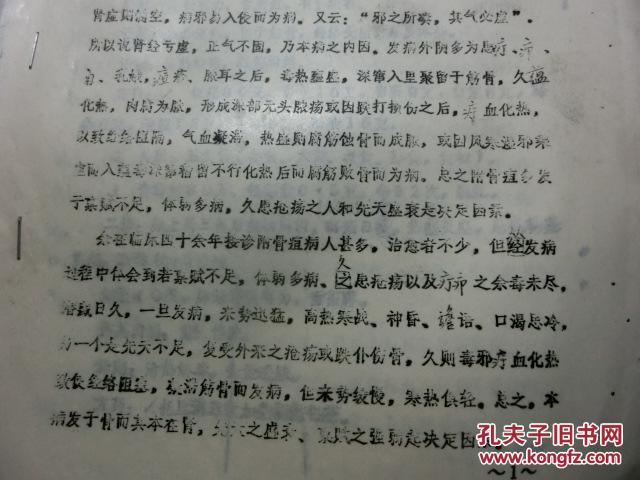 肾虚则骨空，病邪易入侵而为病。又云："邪之所凑，其气必虚"。
所以说肾经亏虚，正气不固，乃本病之内因。发病外阴多为患疔、疖、
乳蛾，脓耳之后，毒热蕴盛，深窜入里聚留于筋骨，久蕴
化热，肉腐为脓，形成深部无头脓疡或因跌打损伤之后，瘀血化热，
以致经络阻隔，气血凝滞，热盛则腐筋蚀骨而成脓，或因风寒湿邪乘
虚而入留不行化热后而腐筋败骨而为病。总之附骨疽多发
于禀赋不足，体弱多病，久患疮疡之人和先天盛衰是决定因素。
余在临床四十余年接诊附骨疽病人甚多，治愈者不少，但发病
过程中体会到若禀赋不足，体弱多病、久患疮疡以及疔疖之余毒未尽，
日久，一旦发病，来势迅猛，高热寒战、神昏、谵语、口渴思冷，
另一个是先天不足，复受外来之疮疡或跌仆伤骨，久则毒邪瘀血化热
致使经络阻塞，凝滞筋骨而发病，但来势缓慢，寒热俱轻。总之，本
病发于骨而其本在肾，先天之盛衰、禀赋之强弱是决定因
～1～
孔夫子旧书网
www.kongfz.com